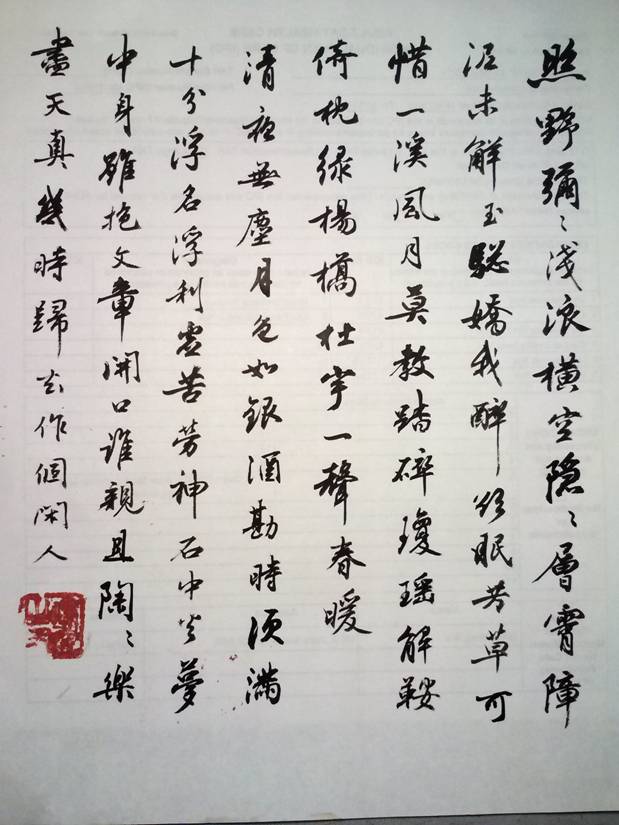 照野彌〻淺浪橫空隐〻層霄障
泥未解玉驄嬌我醉欲眠芳草可
惜一溪風月莫教踏碎瓊瑶解鞍
倚枕绿楊橋杜宇一聲春暖
清夜無塵月色如銀酒勘時须满
十分浮名浮利虚苦劳神石中火夢
中身雖抱文章開口誰親且陶〻樂
盡天真幾時歸去作個閑人